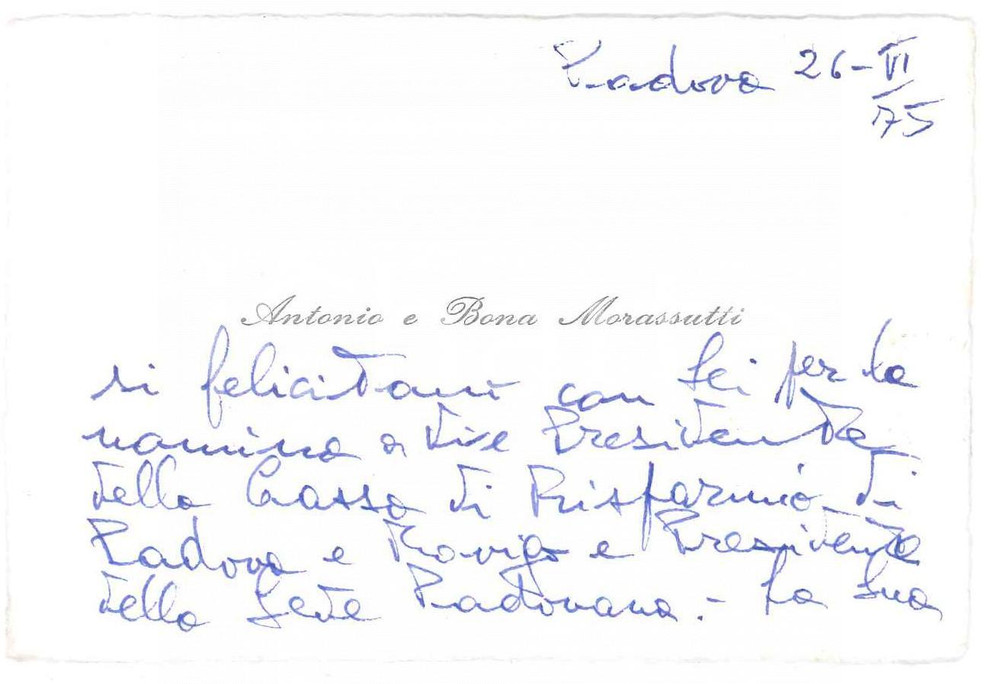 Padova 26-VI
75
Antonio e Bona Morassutti
si felicitano con Lei per la
nomina a Vice Presidente
della Cassa di Risparmio di
Padova e Rovigo e Presidente
della Sede Padovana.- La Sua